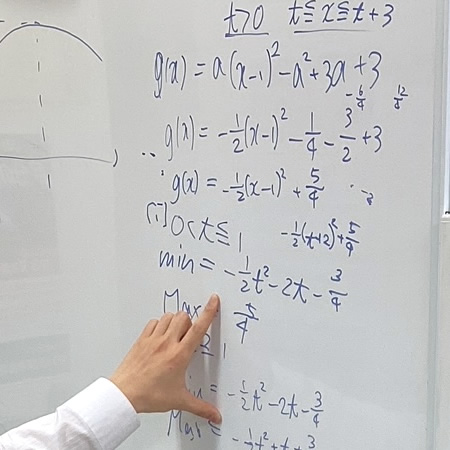 t>0 t≦x≦t+3
g(x) = a(x-1)² - a² + 3a + 3
-6/4 12/4
∴ g(x) = -1/2(x-1)² - 1/4 - 3/2 + 3
g(x) = -1/2(x-1)² + 5/4
(i) 0<t≦1 -1/2(t+2)² + 5/4
min = -1/2t² - 2t - 3/4
Max 5/4
1
= -1/2t² - 2t - 3/4
Max =